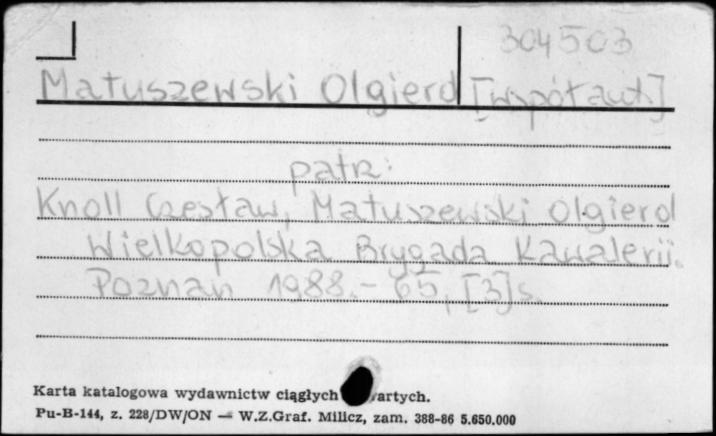 304503
Matuszewski Olgierd [współaut.]
patrz:
Knoll Czesław, Matuszewski Olgierd
Wielkopolska Brygada Kawalerii.
Poznań 1988. - 65, [3] s.
Karta katalogowa wydawnictw ciągłych artych.
Pu-B-144, z. 228/DW/ON — W.Z.Graf. Milicz, zam. 388-86 5.650.000